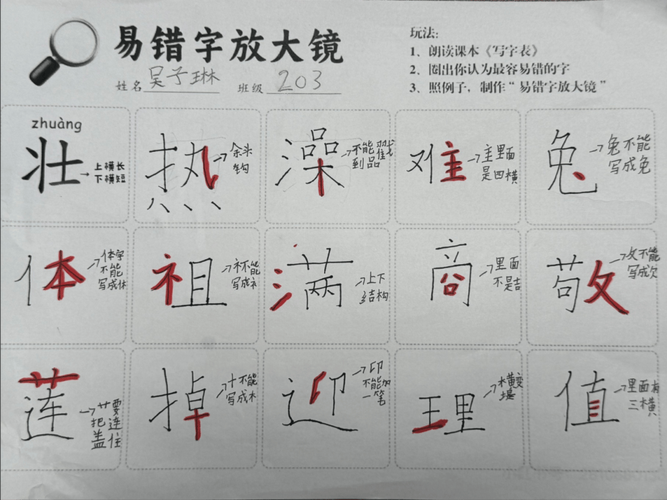 易错字放大镜
姓名 吴予琳 班级 203
玩法:
1、朗读课本《写字表》
2、圈出你认为最容易错的字
3、照例子,制作“易错字放大镜”
zhuàng
壮 上横长
下横短
热
钩
澡 不能
到品
难 主里面
是四横
兔 兔不能
写成免
体 体字
不能
写成休
祖 礻不能
写成衤
满 上下
结构
商 里面
不是古
敬 攵不能
写成欠
莲 艹要
把连
盖住
掉 十不能
写成木
迎 卬
不能加
一笔
理 横变
提
值 里面有
三横